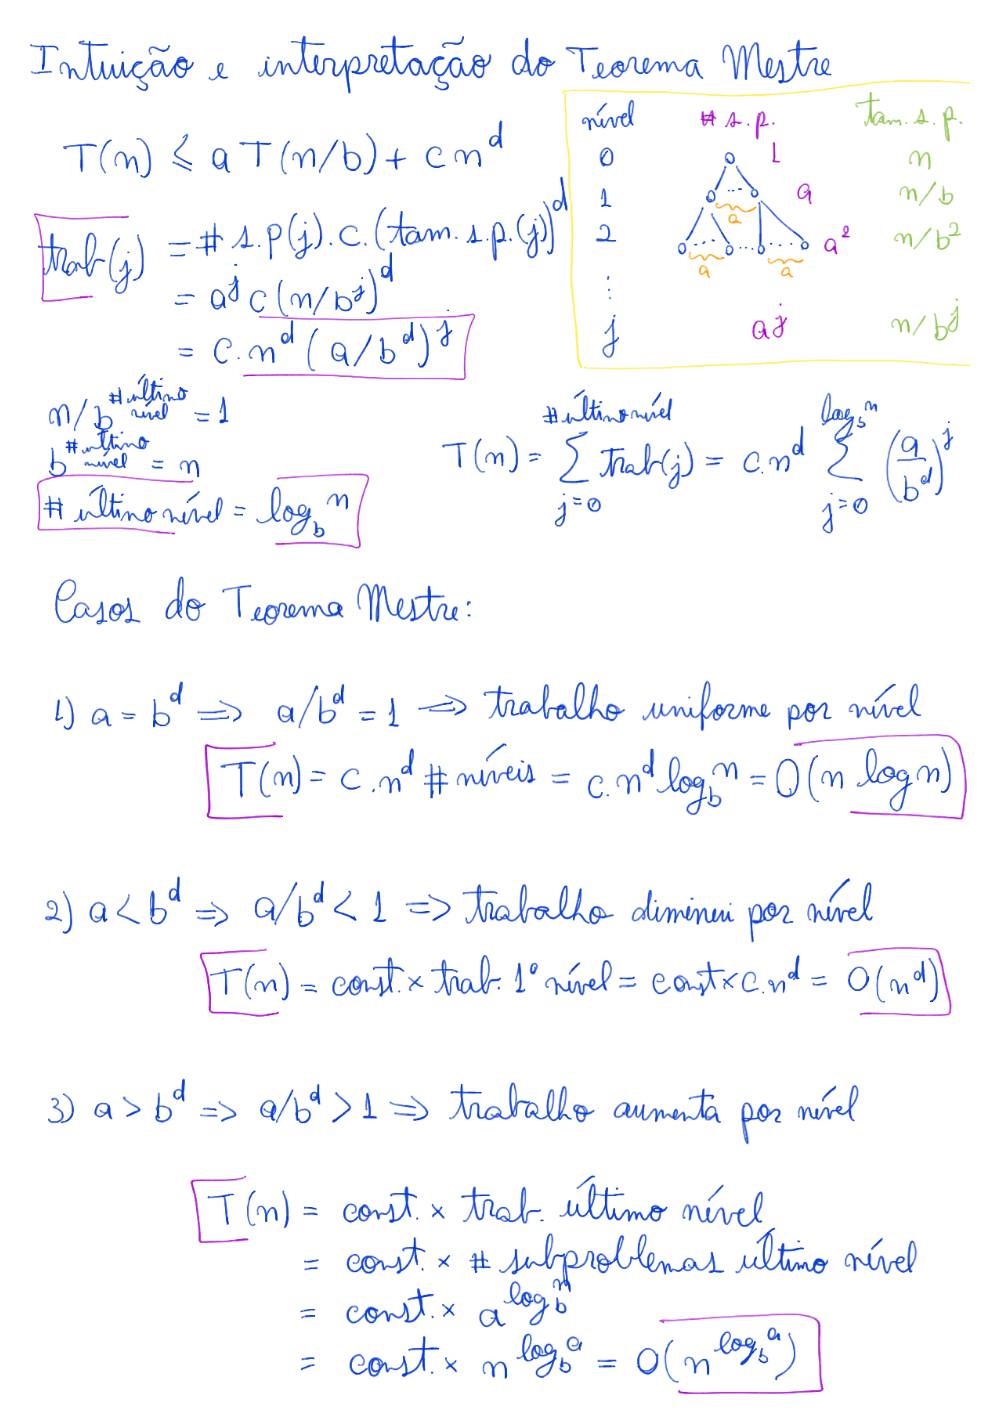 Intuição e interpretação do Teorema Mestre
T(n) ≤ a T(n/b) + c n^d
nível # s.p. tam. s.p.
0 1 n
1 a n/b
a
2 a^2 n/b^2
a a
⋮
j a^j n/b^j
trab(j) = # s.p(j).c.(tam. s.p.(j))^d
= a^j c (n/b^j)^d
= c.n^d (a/b^d)^j
n/b^{# último nível} = 1
b^{# último nível} = n
# último nível = log_b n
T(n) = ∑_{j=0}^{# último nível} trab(j) = c.n^d ∑_{j=0}^{log_b n} (a/b^d)^j
Casos do Teorema Mestre:
1) a = b^d => a/b^d = 1 => trabalho uniforme por nível
T(n) = c.n^d # níveis = c.n^d log_b n = O(n log n)
2) a < b^d => a/b^d < 1 => trabalho diminui por nível
T(n) = const. x trab. 1º nível = const x c.n^d = O(n^d)
3) a > b^d => a/b^d > 1 => trabalho aumenta por nível
T(n) = const. x trab. último nível
= const. x # subproblemas último nível
= const. x a^{log_b n}
= const. x n^{log_b a} = O(n^{log_b a})